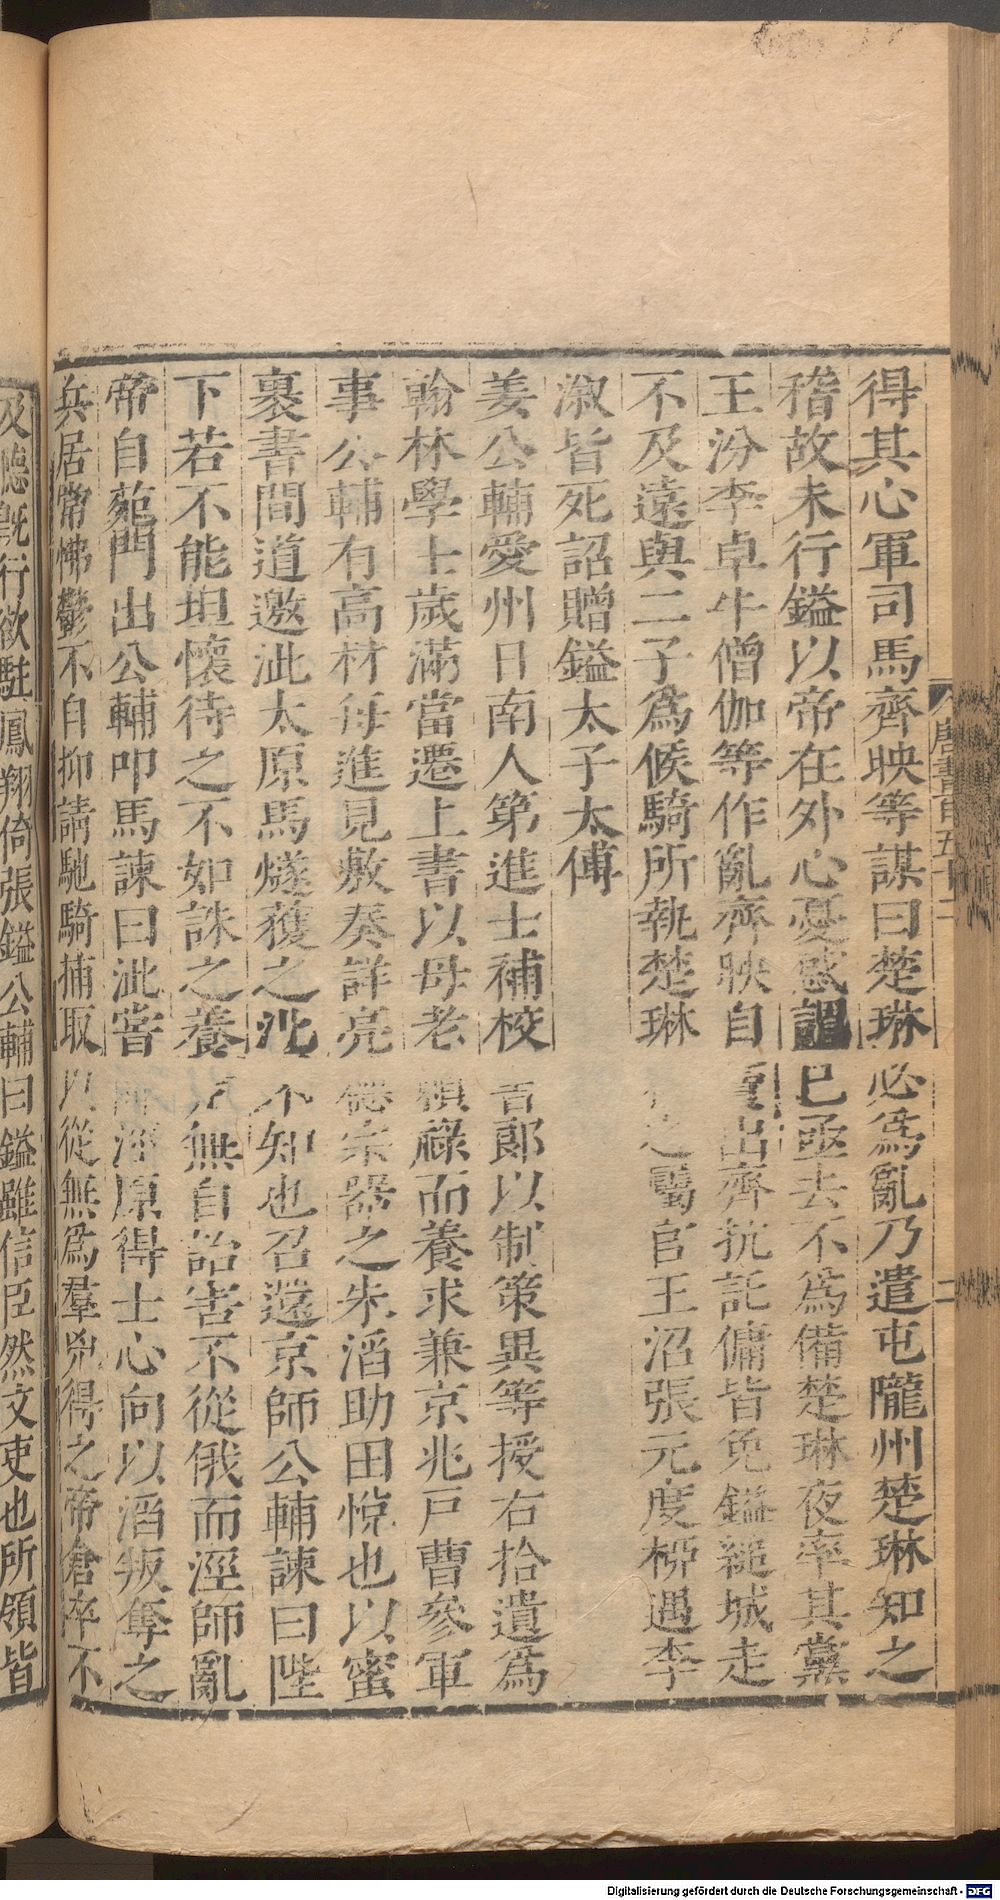 唐書百五十二
二
得其心軍司馬齊映等謀曰楚琳必爲亂乃遣屯隴州楚琳知之
稽故未行鎰以帝在外心憂惑謂已亟去不爲備楚琳夜率其黨
王汾李卓牛僧伽等作亂齊映自竇出齊抗託傭皆免鎰縋城走
不及遠與二子爲候騎所執楚琳之屬官王沼張元度柳遇李
淑皆死詔贈鎰太子太傅
姜公輔愛州日南人第進士補校書郎以制策異等授右拾遺爲
翰林學士歲滿當遷上書以母老賴祿而養求兼京兆戶曹參軍
事公輔有高材每進見敷奏詳亮德宗器之朱滔助田悅也以蜜
裹書間道邀泚太原馬燧獲之泚不知也召還京師公輔諫曰陛
下若不能坦懷待之不如誅之養虎無自詒害不從俄而涇師亂
帝自苑門出公輔叩馬諫曰泚嘗帥涇原得士心向以滔叛奪之
兵居常怫鬱不自抑請馳騎捕取以從無爲羣兇得之帝倉卒不
及聽既行欲駐鳳翔倚張鎰公輔曰鎰雖信臣然文吏也所領皆
Digitalisierung gefördert durch die Deutsche Forschungsgemeinschaft - DFG